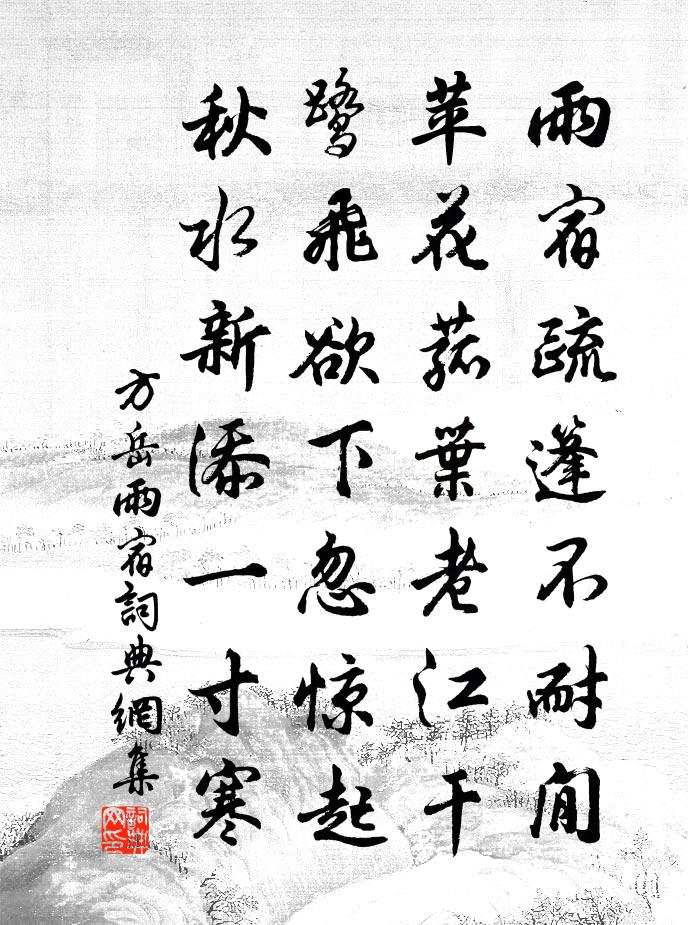 雨宿疏蓬不耐閒
苹花菰葉老江干
鷺飛欲下忽惊起
秋水新添一寸寒
方岳雨宿詞典網集
詞典网印